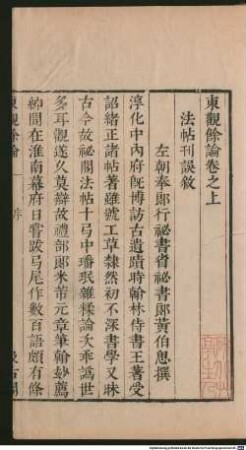 東觀餘論卷之上
法帖刊誤敘
左朝奉郎行祕書省祕書郎黃伯思撰
淳化中內府旣博訪古遺蹟時翰林侍書王著受
詔緒正諸帖著雖號工草隸然初不深書學又昧
古今故祕閣法帖十弓中璠珉雜糅論次乖譌世
多耳觀遂久莫辯故禮部郎米芾元章筆翰妙薦
紳間在淮南幕府日嘗跋弓尾作數百語頗有條
東觀餘論